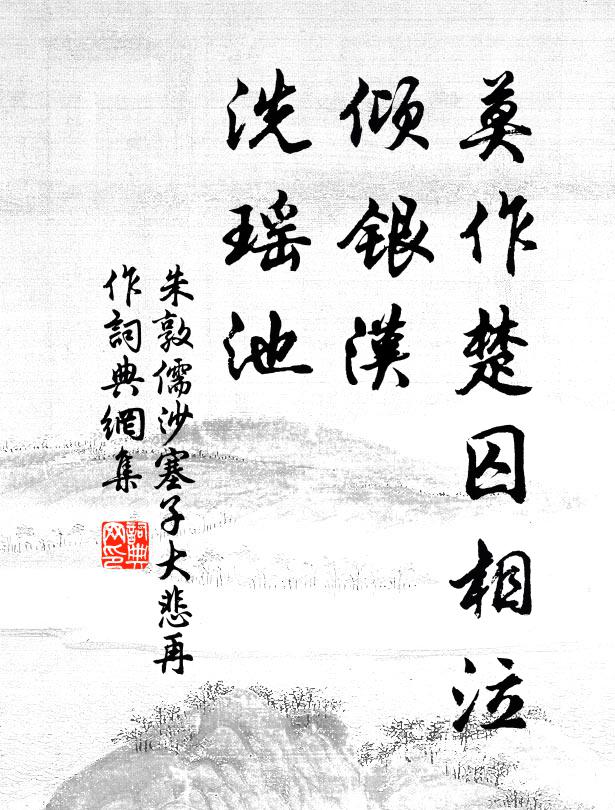 莫作楚囚相泣
傾銀漢
洗瑤池
朱敦儒沙塞子大悲再
作詞典網集
詞典
网印